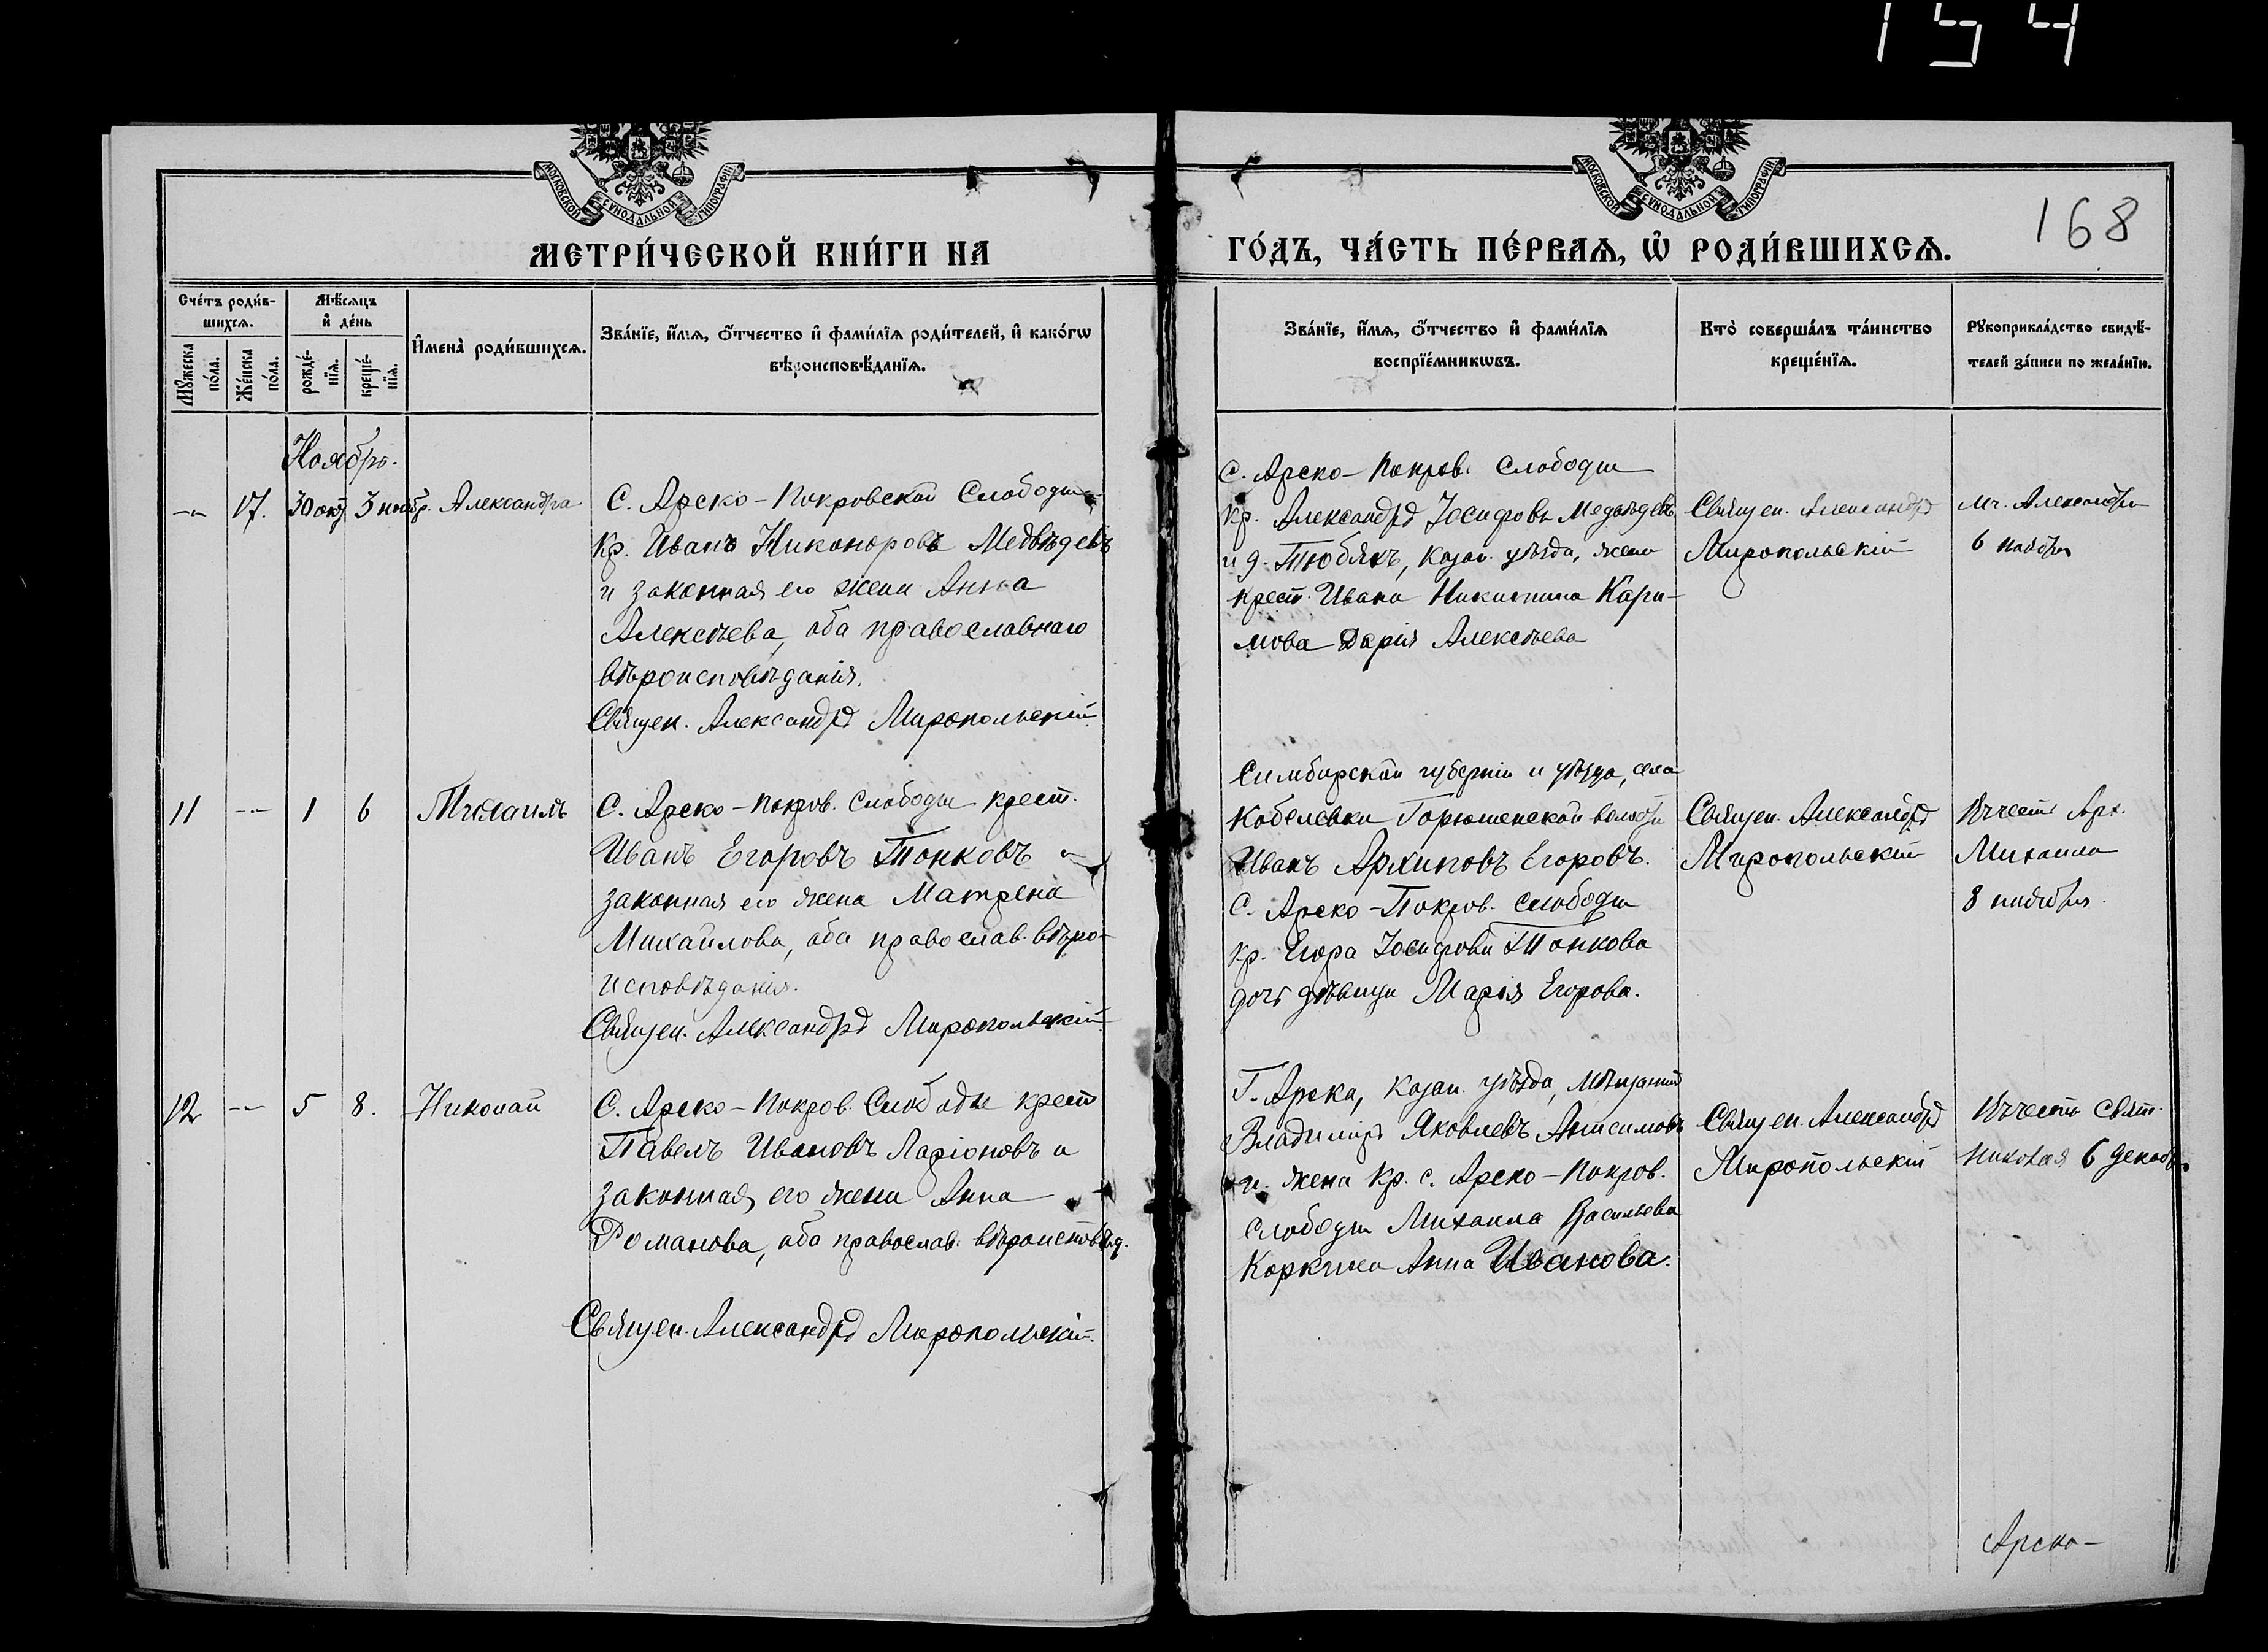 154
168
МОСКОВСКОЙ СУНОДАЛЬНОЙ ТИПОГРАФІИ
МОСКОВСКОЙ СУНОДАЛЬНОЙ ТИПОГРАФІИ
МЕТРИ́ЧЕСКОЙ КНИ́ГИ НА
ГО́ДЪ, ЧА́СТЬ ПЕ́РВАѦ, Ѡ҆ РОДИ́ВШИХСѦ.
Сче́тъ роди́в-
шихсѧ.
Мꙋжеска по́ла.
Же́нска по́ла.
Мѣ́сѧцъ
и҆ де́нь
рожде́-
нїѧ.
креще́-
нїѧ.
И҆мена̀ роди́вшихсѧ.
Зва́нїе, и҆́мѧ, ѻ҆́тчество и҆ фами́лїѧ роди́телей, и҆ како́гѡ
вѣроисповѣ́данїѧ.
Зва́нїе, и҆́мѧ, ѻ҆́тчество и҆ фами́лїѧ
воспрїе́мникѡвъ.
Кто̀ соверша́лъ та́инство
креще́нїѧ.
Рꙋкоприкла́дство свидѣ́-
телей за́писи по жела́нїю.
Ноябрь.
-- 17. 30 окт. 3 ноябр. Александра
С. Арско-Покровской Слободы
Кр. Иванъ Никаноровъ Медвѣдевъ
и законная его жена Анна
Алексѣева, оба православнаго
вѣроисповѣданія.
Священ. Александръ Миропольскій
С. Арско-Покров. Слободы
Кр. Александръ Іосифовъ Медвѣдевъ
и д. Тюбякъ, Казан. уѣзда, жена
крест. Ивана Никитина Кари-
мова Дарія Алексѣева
Священ. Александръ
Миропольскій
Мч. Александры
6 ноября
11 -- 1 6 Михаилъ
С. Арско-Покров. Слободы крест.
Иванъ Егоровъ Тонковъ и
законная его жена Матрена
Михайлова, оба православ. вѣро-
исповѣданія.
Священ. Александръ Миропольскій
Симбирской губерніи и уѣзда, села
Кобелевки Горюшенской волости
Иванъ Архиповъ Егоровъ.
С. Арско-Покров. слободы
кр. Егора Іосифова Тонкова
дочь дѣвица Марія Егорова.
Священ. Александръ
Миропольскій
Въ честь Арх.
Михаила
8 ноября.
12 -- 5 8. Николай
С. Арско-Покров. Слободы крест
Павелъ Ивановъ Ларіоновъ и
законная его жена Анна
Романова, оба православ. вѣроисповѣд.
Священ. Александръ Миропольскій.
Г. Арска, Казан. уѣзда, мѣщанинъ
Владиміръ Яковлевъ Анисимовъ
и жена Кр. с. Арско-Покров.
слободы Михаила Васильева
Коркина Анна Иванова.
Священ. Александръ
Миропольскій
Въ честь Свят.
Николая 6 декабр.
Арско-